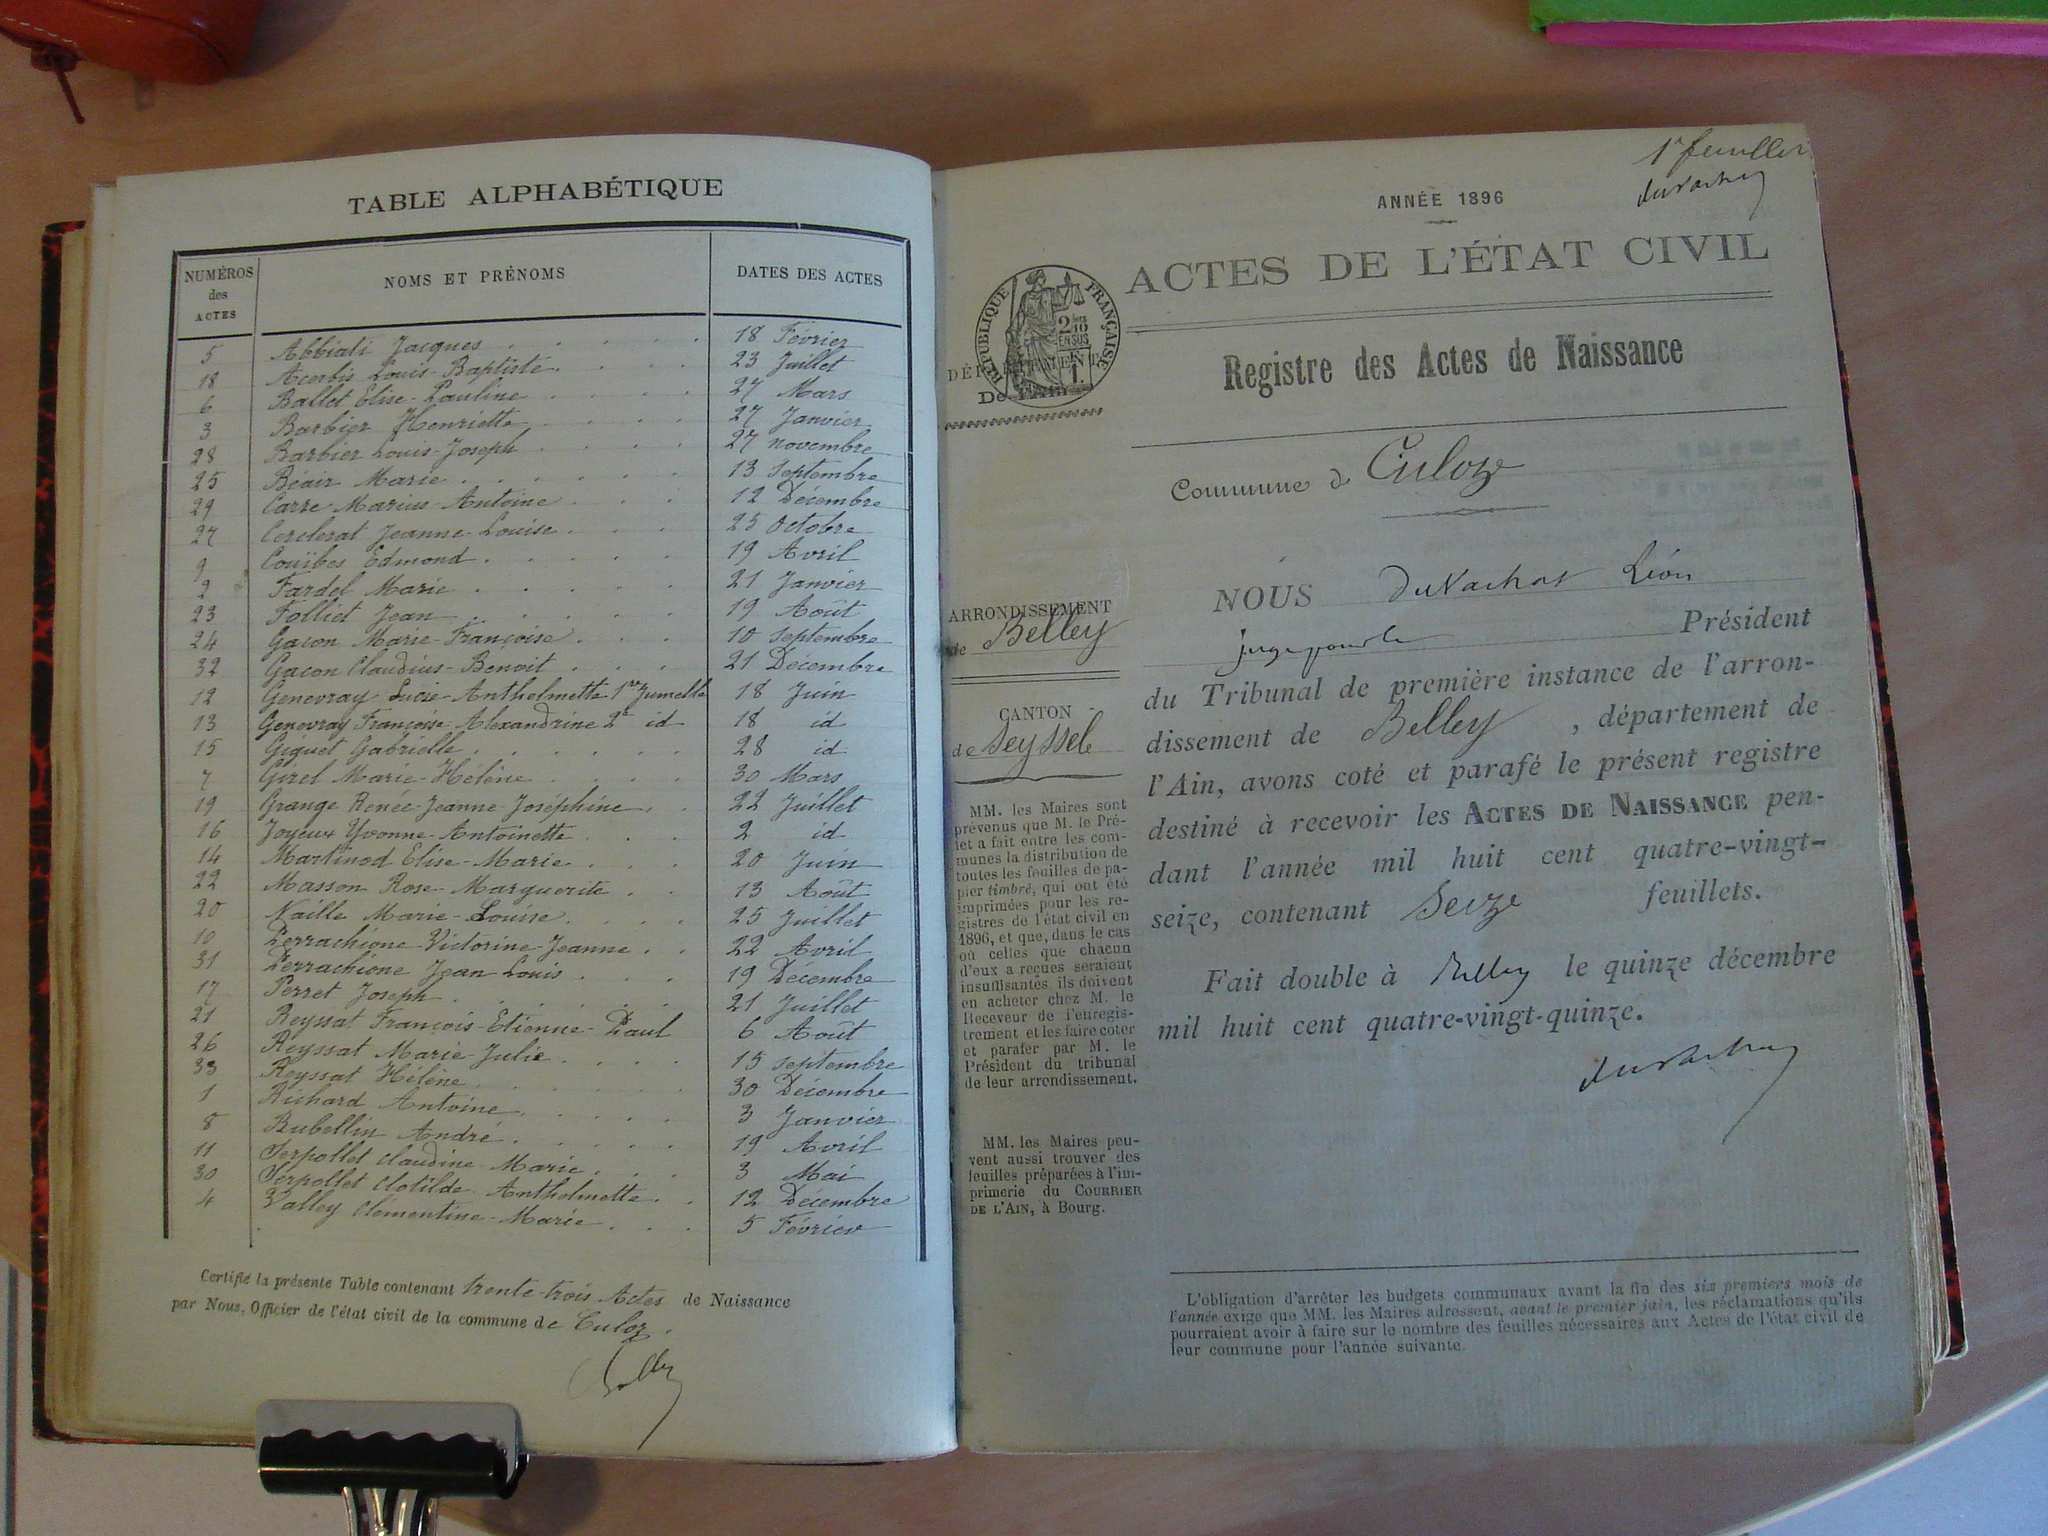 TABLE ALPHABÉTIQUE
NUMÉROS des ACTES NOMS ET PRÉNOMS DATES DES ACTES
5 Abbiati Jacques 18 Février
18 Acerbis Louis-Baptiste 23 Juillet
6 Ballet Elise-Pauline 27 Mars
3 Barbier Henriette 27 Janvier
28 Barbier Louis-Joseph 27 novembre
25 Béair Marie 13 Septembre
29 Carre Marius-Antoine 12 Décembre
27 Cerclerat Jeanne-Louise 25 Octobre
9 Couïbes Edmond 19 Avril
2 Fardel Marie 21 Janvier
23 Folliet Jean 19 Août
24 Gacon Marie-Françoise 10 Septembre
32 Gacon Claudius-Benoit 21 Décembre
12 Genevray Lucie-Anthelmette 1re Jumelle 18 Juin
13 Genevray Françoise-Alexandrine 2e id 18 id
15 Giguet Gabrielle 28 id
7 Girel Marie-Hélène 30 Mars
19 Grange Renée-Jeanne-Joséphine 22 Juillet
16 Joyeux Yvonne-Antoinette 2 id
14 Martinod Elise-Marie 20 Juin
22 Masson Rose-Marguerite 13 Août
20 Naille Marie-Louise 25 Juillet
10 Perrachione Victorine-Jeanne 22 Avril
31 Perrachione Jean Louis 19 Décembre
17 Perret Joseph 21 Juillet
21 Reyssat François-Etienne-Paul 6 Août
26 Reyssat Marie-Julie 15 Septembre
33 Reyssat Hélène 30 Décembre
1 Richard Antoine 3 Janvier
8 Rubellin André 19 Avril
11 Serpollet Claudine-Marie 3 Mai
30 Serpollet Clotilde-Anthelmette 12 Décembre
4 Valley Clémentine-Marie 5 Février
Certifié la présente Table contenant trente-trois Actes de Naissance
par Nous, Officier de l'état civil de la commune de Culoz.
1r feuillet
duvachat
ANNÉE 1896
ACTES DE L'ÉTAT CIVIL
RÉPUBLIQUE FRANÇAISE
2/10 EN SUS
1 F.
DÉPARTEMENT
De l'Ain
Registre des Actes de Naissance
Commune de Culoz
ARRONDISSEMENT
de Belley
CANTON
de Seyssel
MM. les Maires sont
prévenus que M. le Pré-
fet a fait entre les com-
munes la distribution de
toutes les feuilles de pa-
pier timbré, qui ont été
imprimées pour les re-
gistres de l'état civil en
1896, et que, dans le cas
où celles que chacun
d'eux a reçues seraient
insuffisantes, ils doivent
en acheter chez M. le
Receveur de l'enregis-
trement et les faire coter
et parafer par M. le
Président du tribunal
de leur arrondissement.
MM. les Maires peu-
vent aussi trouver des
feuilles préparées à l'im-
primerie du COURRIER
DE L'AIN, à Bourg.
NOUS Duvachat Léon
juge pour le Président
du Tribunal de première instance de l'arron-
dissement de Belley, département de
l'Ain, avons coté et parafé le présent registre
destiné à recevoir les ACTES DE NAISSANCE pen-
dant l'année mil huit cent quatre-vingt-
seize, contenant Seize feuillets.
Fait double à Belley le quinze décembre
mil huit cent quatre-vingt-quinze.
duvachat
L'obligation d'arrêter les budgets communaux avant la fin des six premiers mois de
l'année exige que MM. les Maires adressent, avant le premier juin, les réclamations qu'ils
pourraient avoir à faire sur le nombre des feuilles nécessaires aux Actes de l'état civil de
leur commune pour l'année suivante.